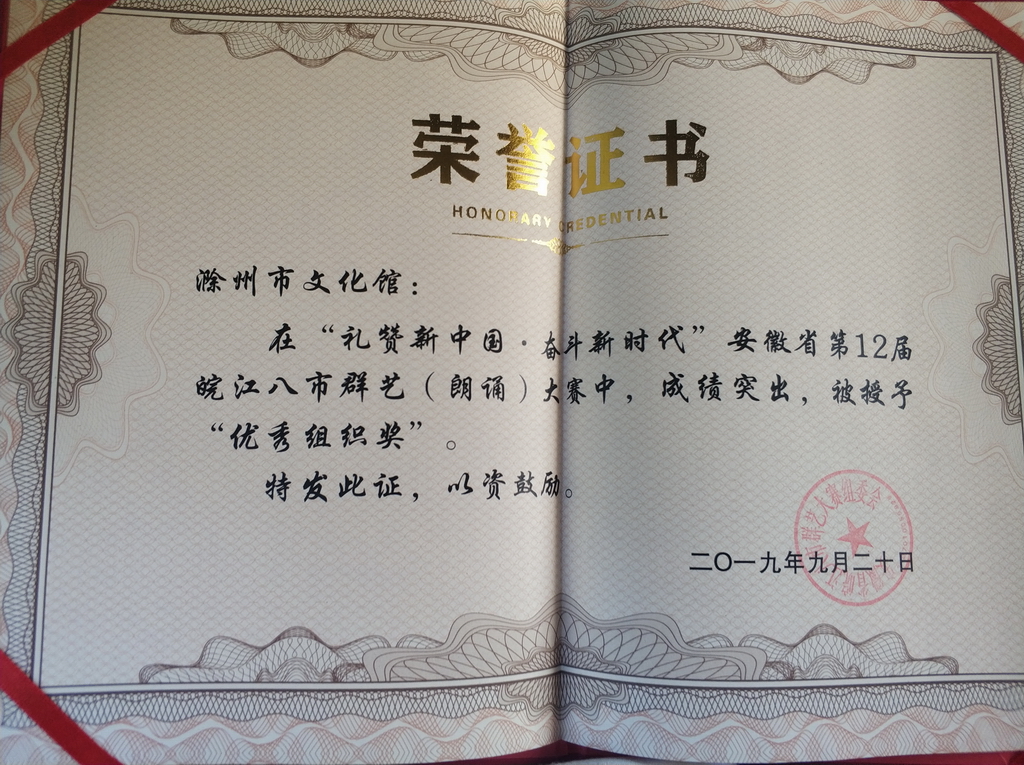 荣誉证书
HONORARY CREDENTIAL
滁州市文化馆：
在“礼赞新中国·奋斗新时代”安徽省第12届
皖江八市群艺（朗诵）大赛中，成绩突出，被授予
“优秀组织奖”。
特发此证，以资鼓励。
群艺大赛组委会
二〇一九年九月二十日